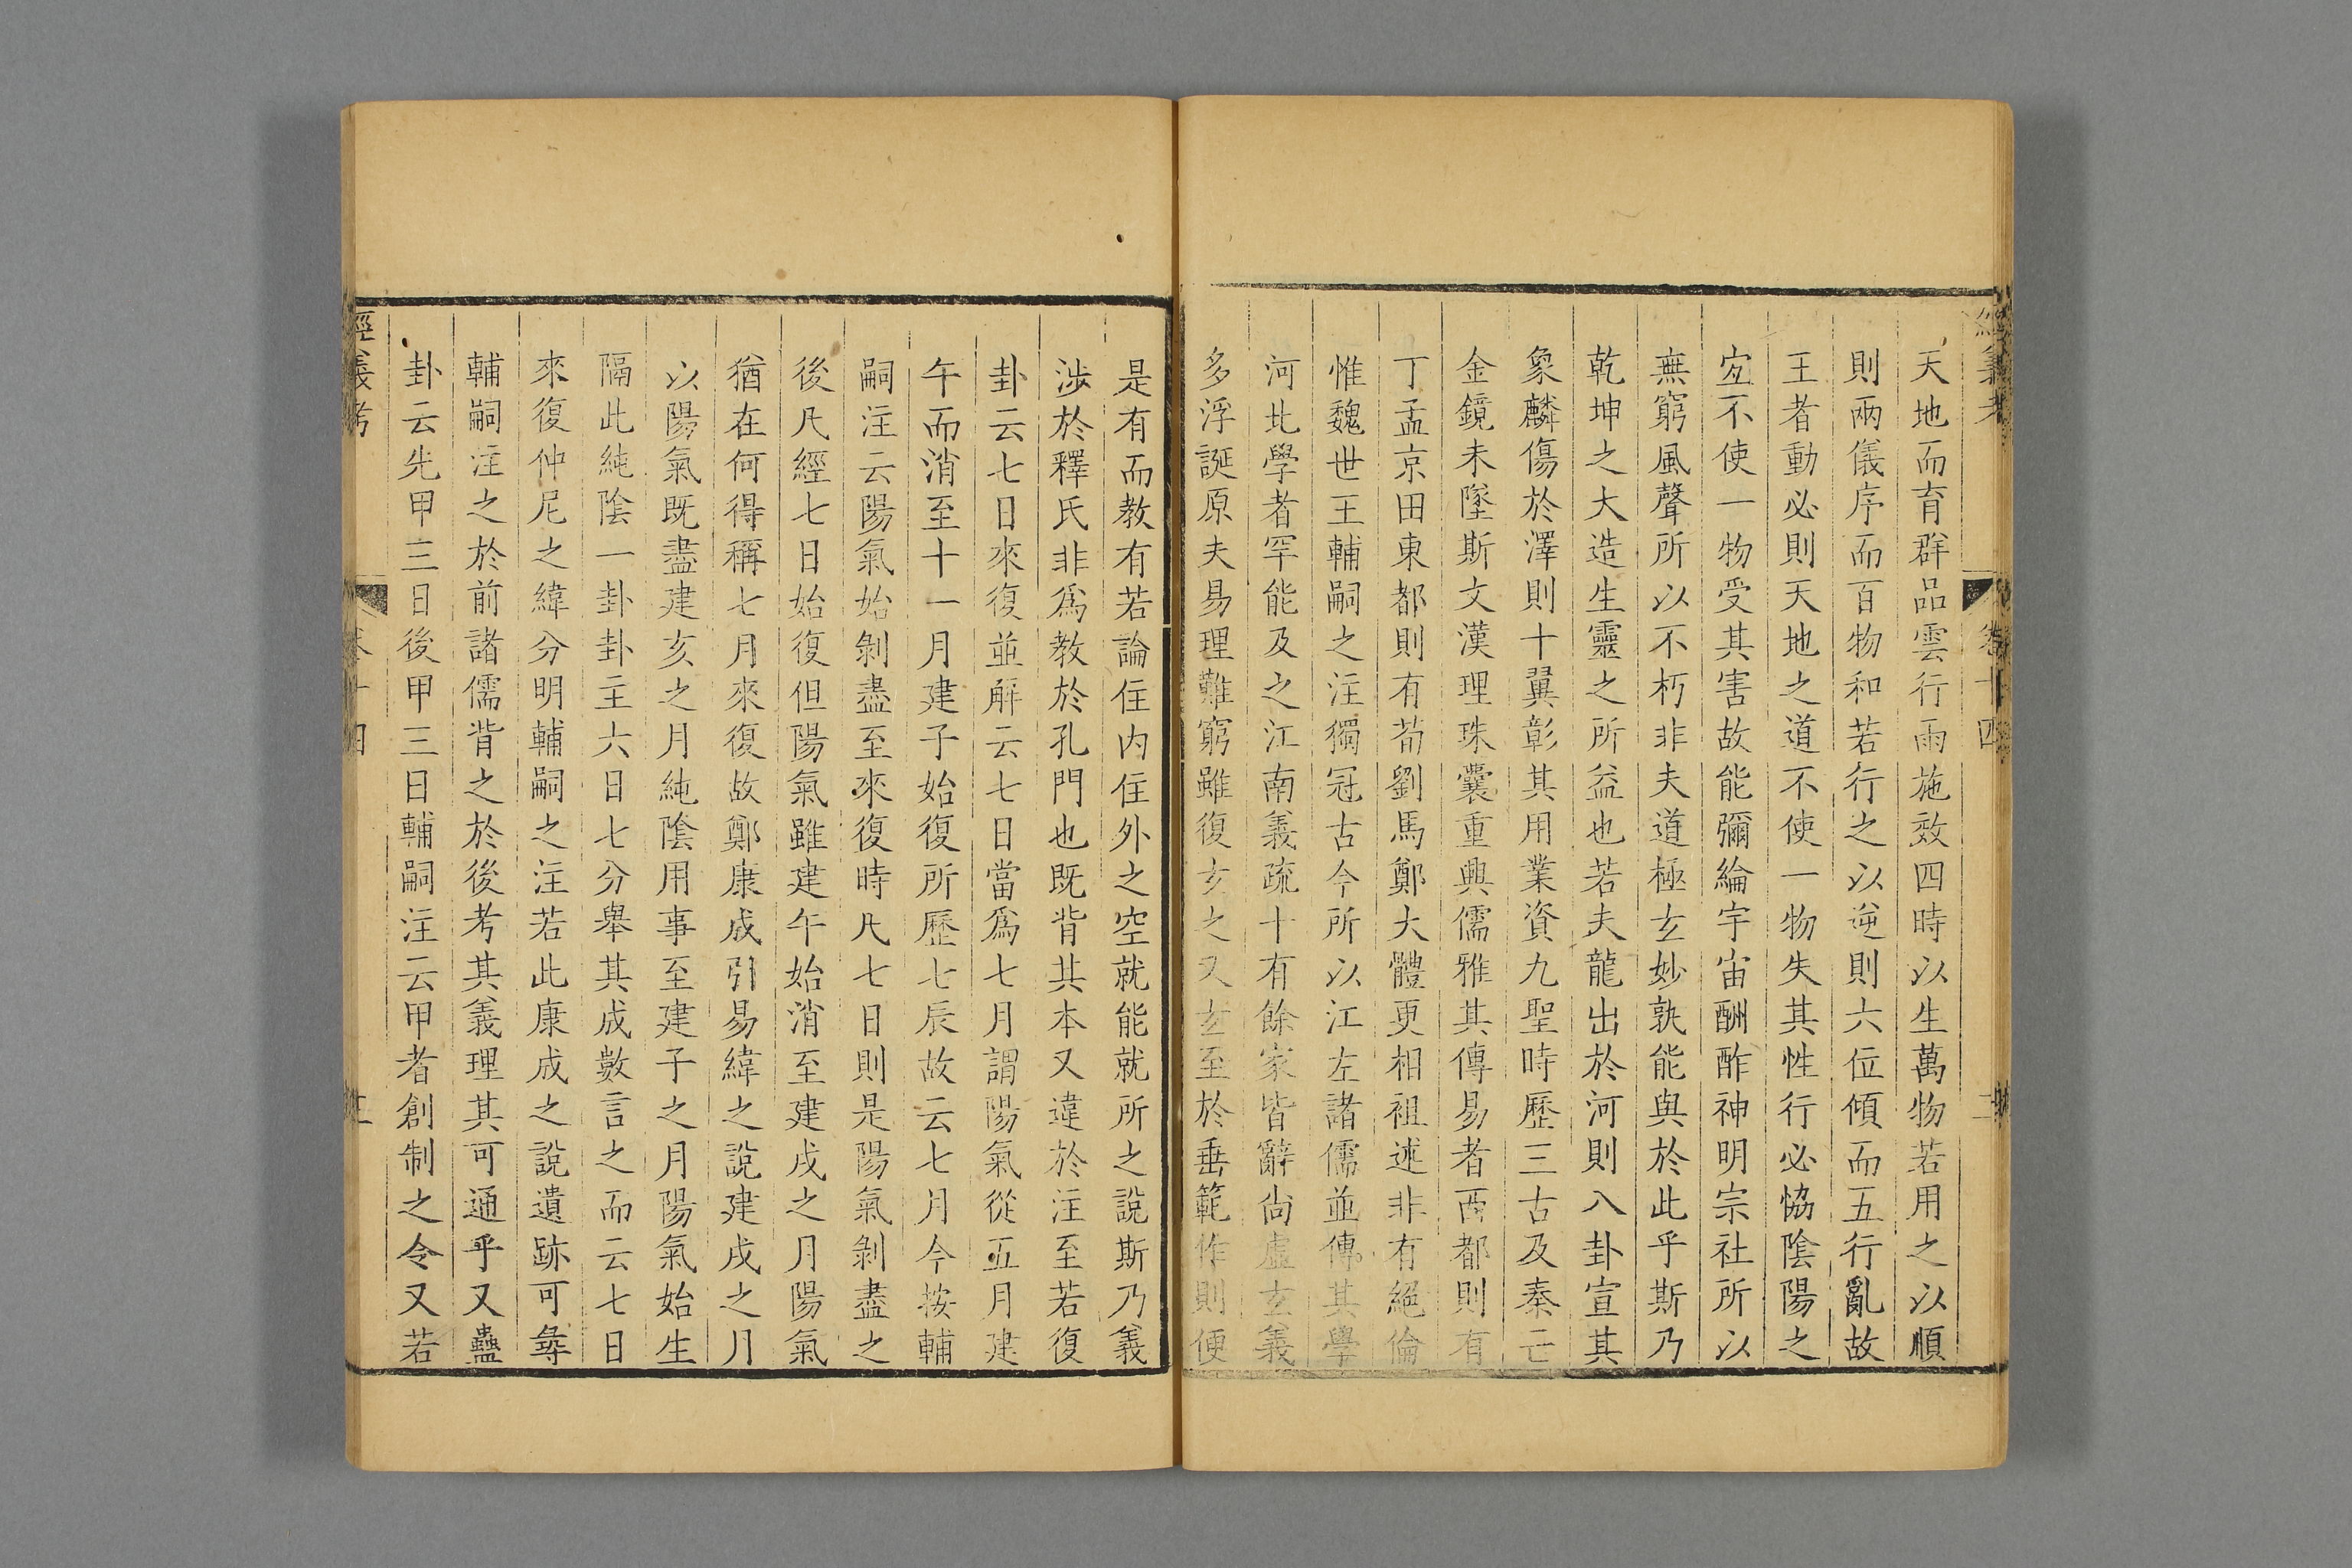 經義考 卷十四
天地而育群品雲行雨施效四時以生萬物若用之以順
則兩儀序而百物和若行之以逆則六位傾而五行亂故
王者動必則天地之道不使一物失其性行必恊陰陽之
宐不使一物受其害故能彌綸宇宙酬酢神明宗社所以
無窮風聲所以不朽非夫道極玄妙孰能與於此乎斯乃
乾坤之大造生靈之所益也若夫龍出於河則八卦宣其
象麟傷於澤則十翼彰其用業資九聖時歷三古及秦亡
金鏡未墜斯文漢理珠囊重興儒雅其傳易者西都則有
丁孟京田東都則有荀劉馬鄭大體更相祖述非有絕倫
惟魏世王輔嗣之注獨冠古今所以江左諸儒並傳其學
河北學者罕能及之江南義疏十有餘家皆辭尚虛玄義
多浮誕原夫易理難窮雖復玄之又玄至於垂範作則便
是有而教有若論住內住外之空就能就所之說斯乃義
涉於釋氏非爲教於孔門也既背其本又違於注至若復
卦云七日來復並解云七日當爲七月謂陽氣從五月建
午而消至十一月建子始復所歷七辰故云七月今按輔
嗣注云陽氣始剝盡至來復時凡七日則是陽氣剝盡之
後凡經七日始復但陽氣雖建午始消至建戌之月陽氣
猶在何得稱七月來復故鄭康成引易緯之說建戌之月
以陽氣既盡建亥之月純陰用事至建子之月陽氣始生
隔此純陰一卦卦主六日七分舉其成數言之而云七日
來復仲尼之緯分明輔嗣之注若此康成之說遺跡可尋
輔嗣注之於前諸儒背之於後考其義理其可通乎又蠱
卦云先甲三日後甲三日輔嗣注云甲者創制之令又若
經義考 卷十四